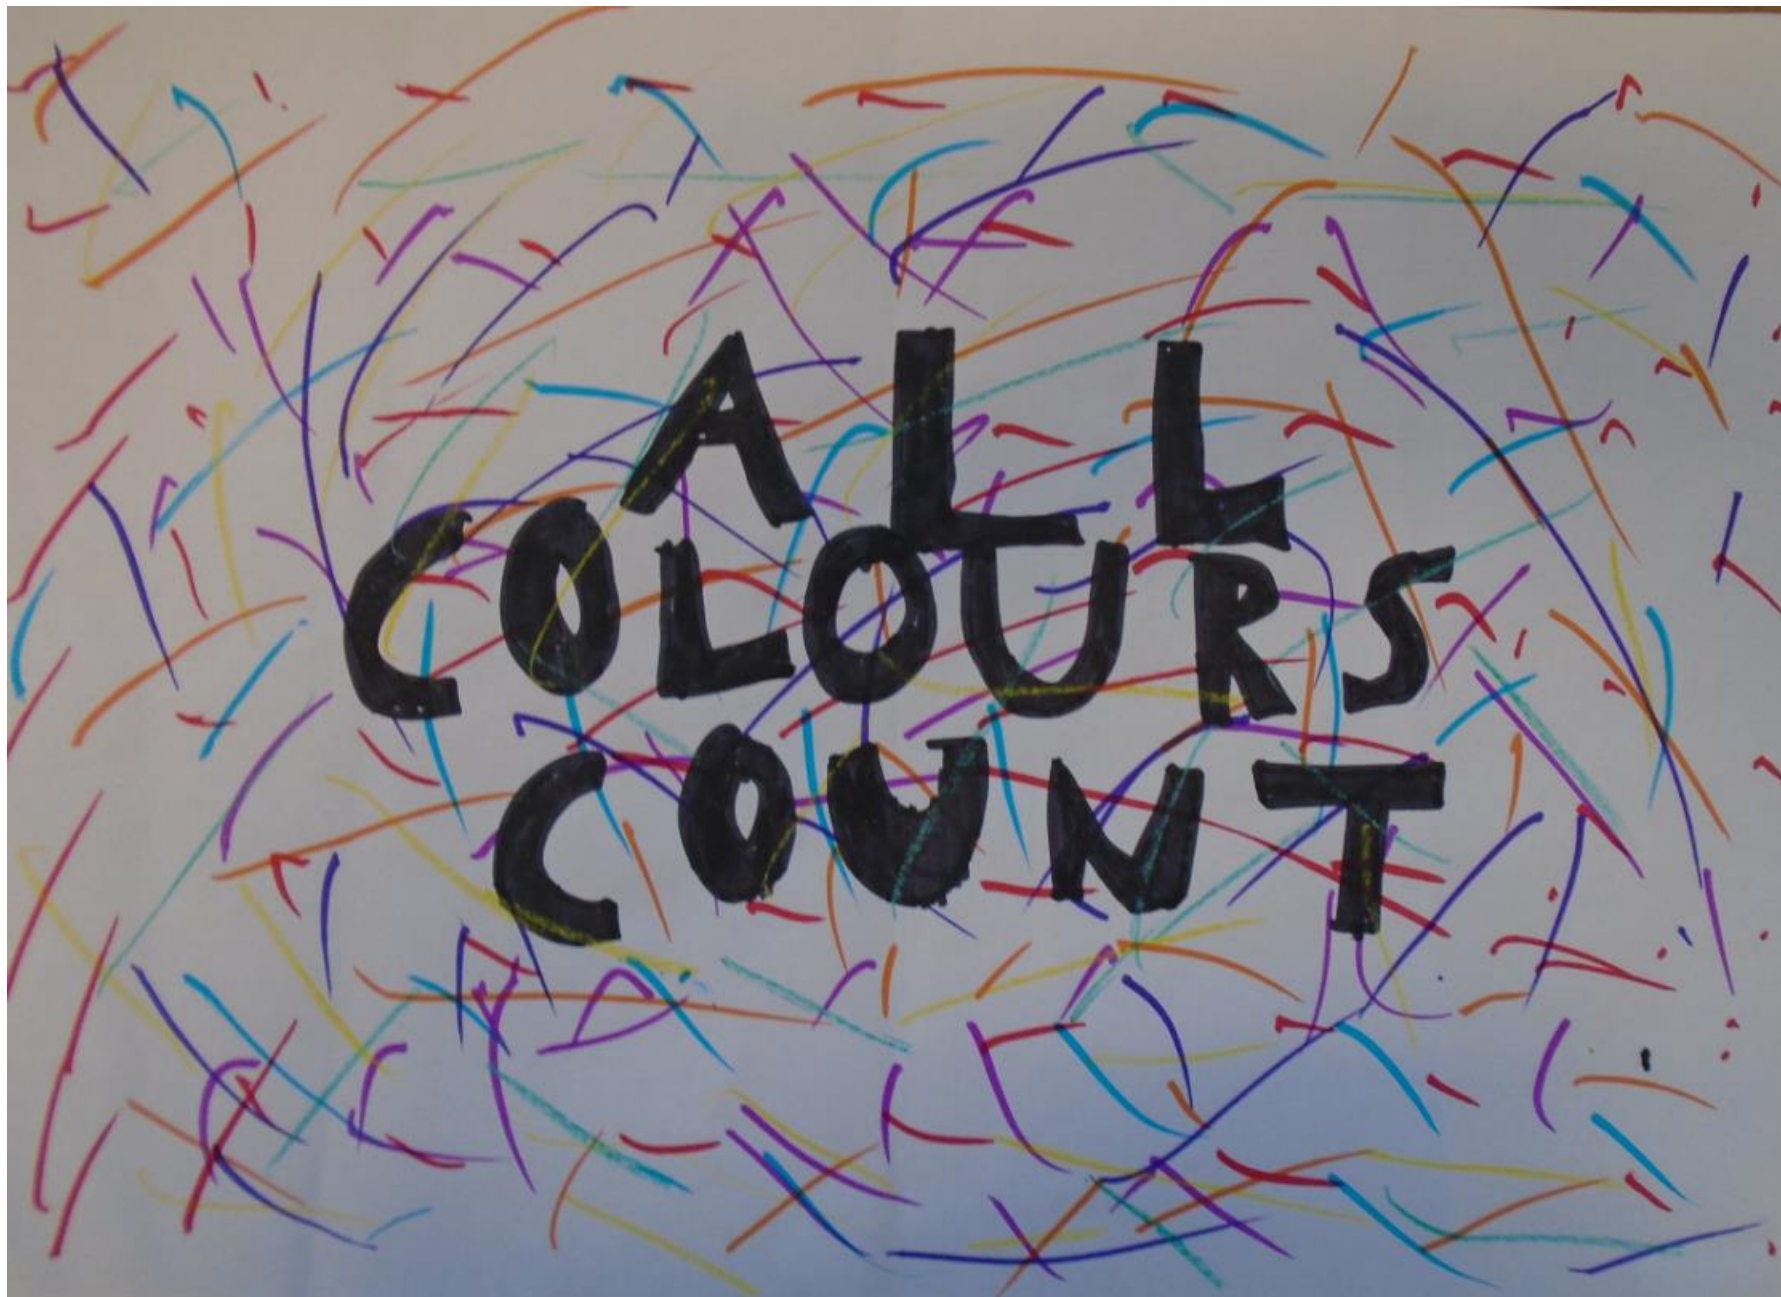 ALL
COLOURS
COUNT